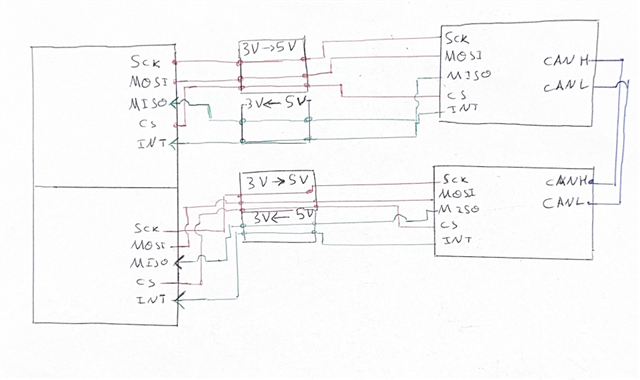 3V→5V
SCK
MOSI
MISO
CS
INT
3V←5V
SCK
MOSI
MISO
CS
INT
CANH
CANL
3V→5V
3V←5V
SCK
MOSI
MISO
CS
INT
CANH
CANL
SCK
MOSI
MISO
CS
INT